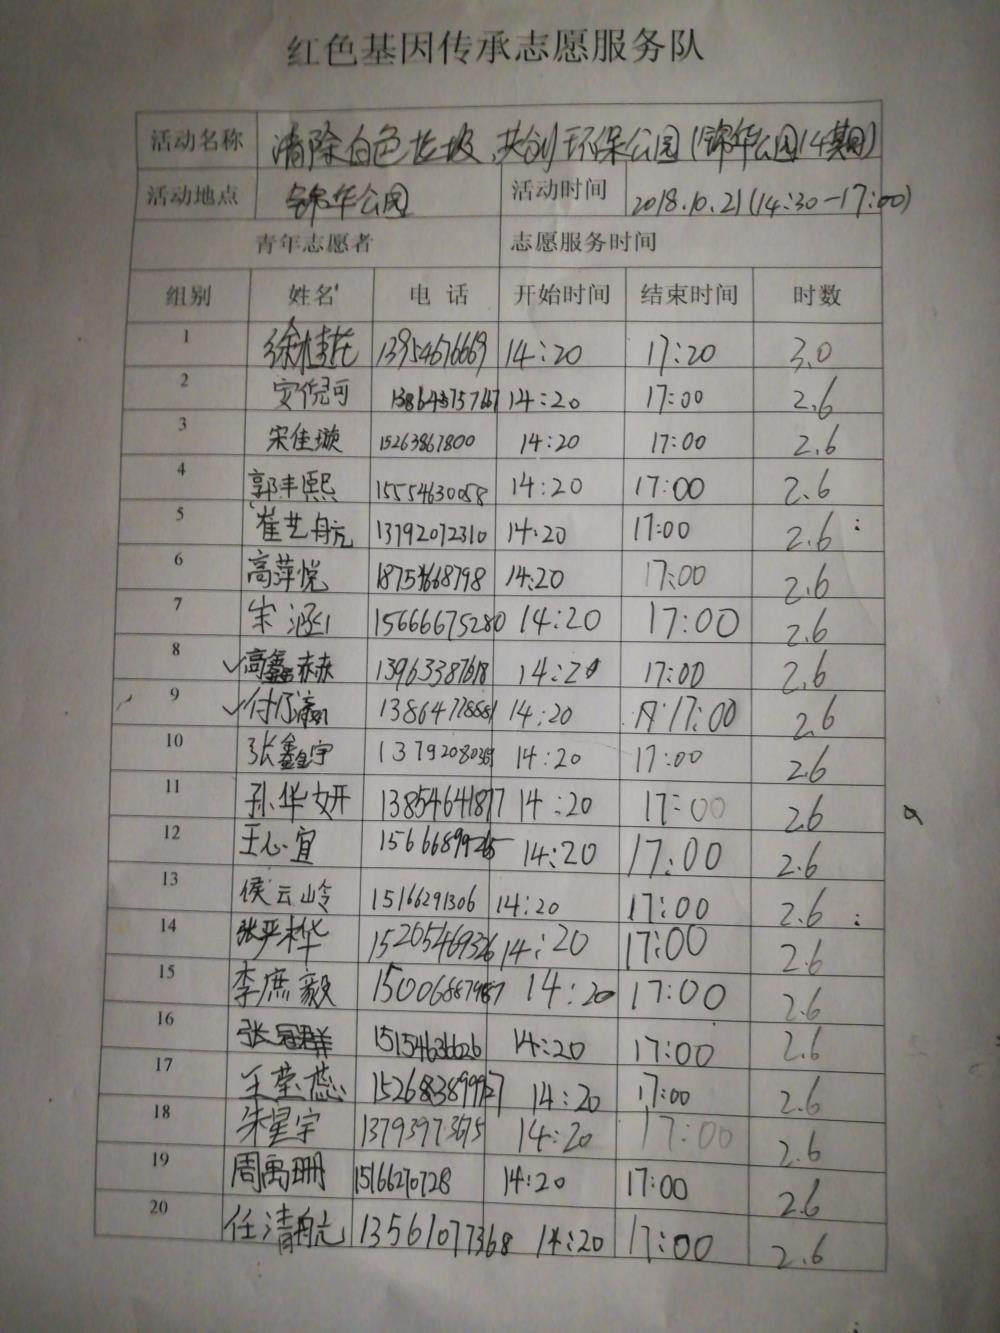 红色基因传承志愿服务队
活动名称 清除白色垃圾,共创环保公园(锦华公园14期)
活动地点 锦华公园 活动时间 2018.10.21(14:30-17:00)
青年志愿者 志愿服务时间
组别 姓名 电话 开始时间 结束时间 时数
1 徐桂花 13954676669 14:20 17:20 3.0
2 安倪可 14:20 17:00 2.6
3 宋佳璇 15263867800 14:20 17:00 2.6
4 郭丰熙 15554630058 14:20 17:00 2.6
5 崔艺航 13792072310 14:20 17:00 2.6
6 高萍悦 18754668798 14:20 17:00 2.6
7 宋涵 15666675280 14:20 17:00 2.6
8 高鑫赫 13963387618 14:20 17:00 2.6
9 13864778881 14:20 17:00 2.6
10 张鑫宇 14:20 17:00 2.6
11 孙华妍 13854641877 14:20 17:00 2.6
12 王心宜 14:20 17:00 2.6
13 侯云岭 15166291306 14:20 17:00 2.6
14 张严桦 15205469326 14:20 17:00 2.6
15 李庶毅 14:20 17:00 2.6
16 张冠群 15154636626 14:20 17:00 2.6
17 王莹蕊 14:20 17:00 2.6
18 朱星宇 13793973675 14:20 17:00 2.6
19 周禹珊 15166270728 14:20 17:00 2.6
20 任清航 13561077368 14:20 17:00 2.6